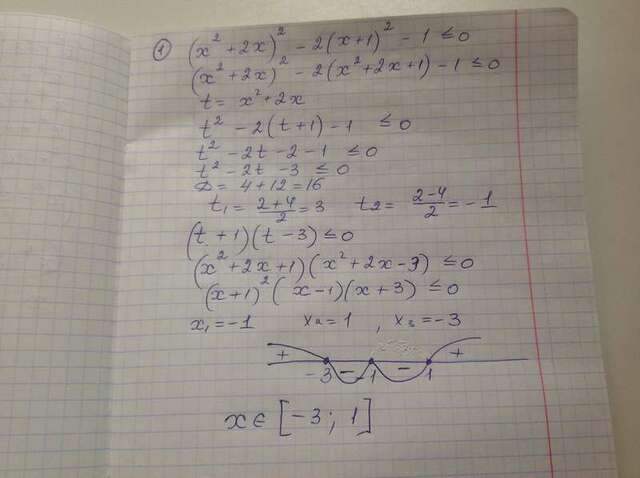 ① (x² + 2x)² - 2(x+1)² - 1 ≤ 0
(x² + 2x)² - 2(x² + 2x + 1) - 1 ≤ 0
t = x² + 2x
t² - 2(t+1) - 1 ≤ 0
t² - 2t - 2 - 1 ≤ 0
t² - 2t - 3 ≤ 0
D = 4 + 12 = 16
t₁ = (2+4)/2 = 3 t₂ = (2-4)/2 = -1
(t + 1)(t - 3) ≤ 0
(x² + 2x + 1)(x² + 2x - 3) ≤ 0
(x+1)² (x-1)(x+3) ≤ 0
x₁ = -1 x₂ = 1 , x₃ = -3
+ - - +
-3 -1 1
x ∈ [-3 ; 1]